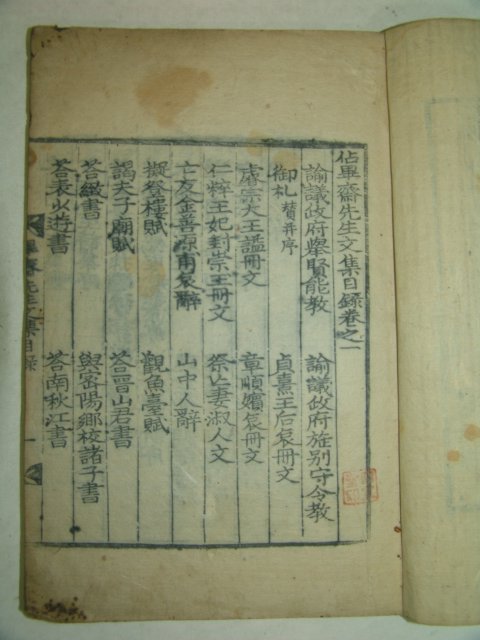 佔畢齋先生文集目錄卷之一
諭議政府擧賢能敎 諭議政府旌別守令敎
御札贊并序 貞熹王后哀冊文
睿宗大王諡冊文 章順嬪哀冊文
仁粹王妃封崇王冊文 祭亡妻淑人文
亡友金善源甫哀辭 山中人辭
擬登樓賦 觀魚臺賦
謁夫子廟賦 答晋山君書
答緻書 與密陽鄕校諸子書
答袁火遊書 答南秋江書
畢齋先生文集目錄 一